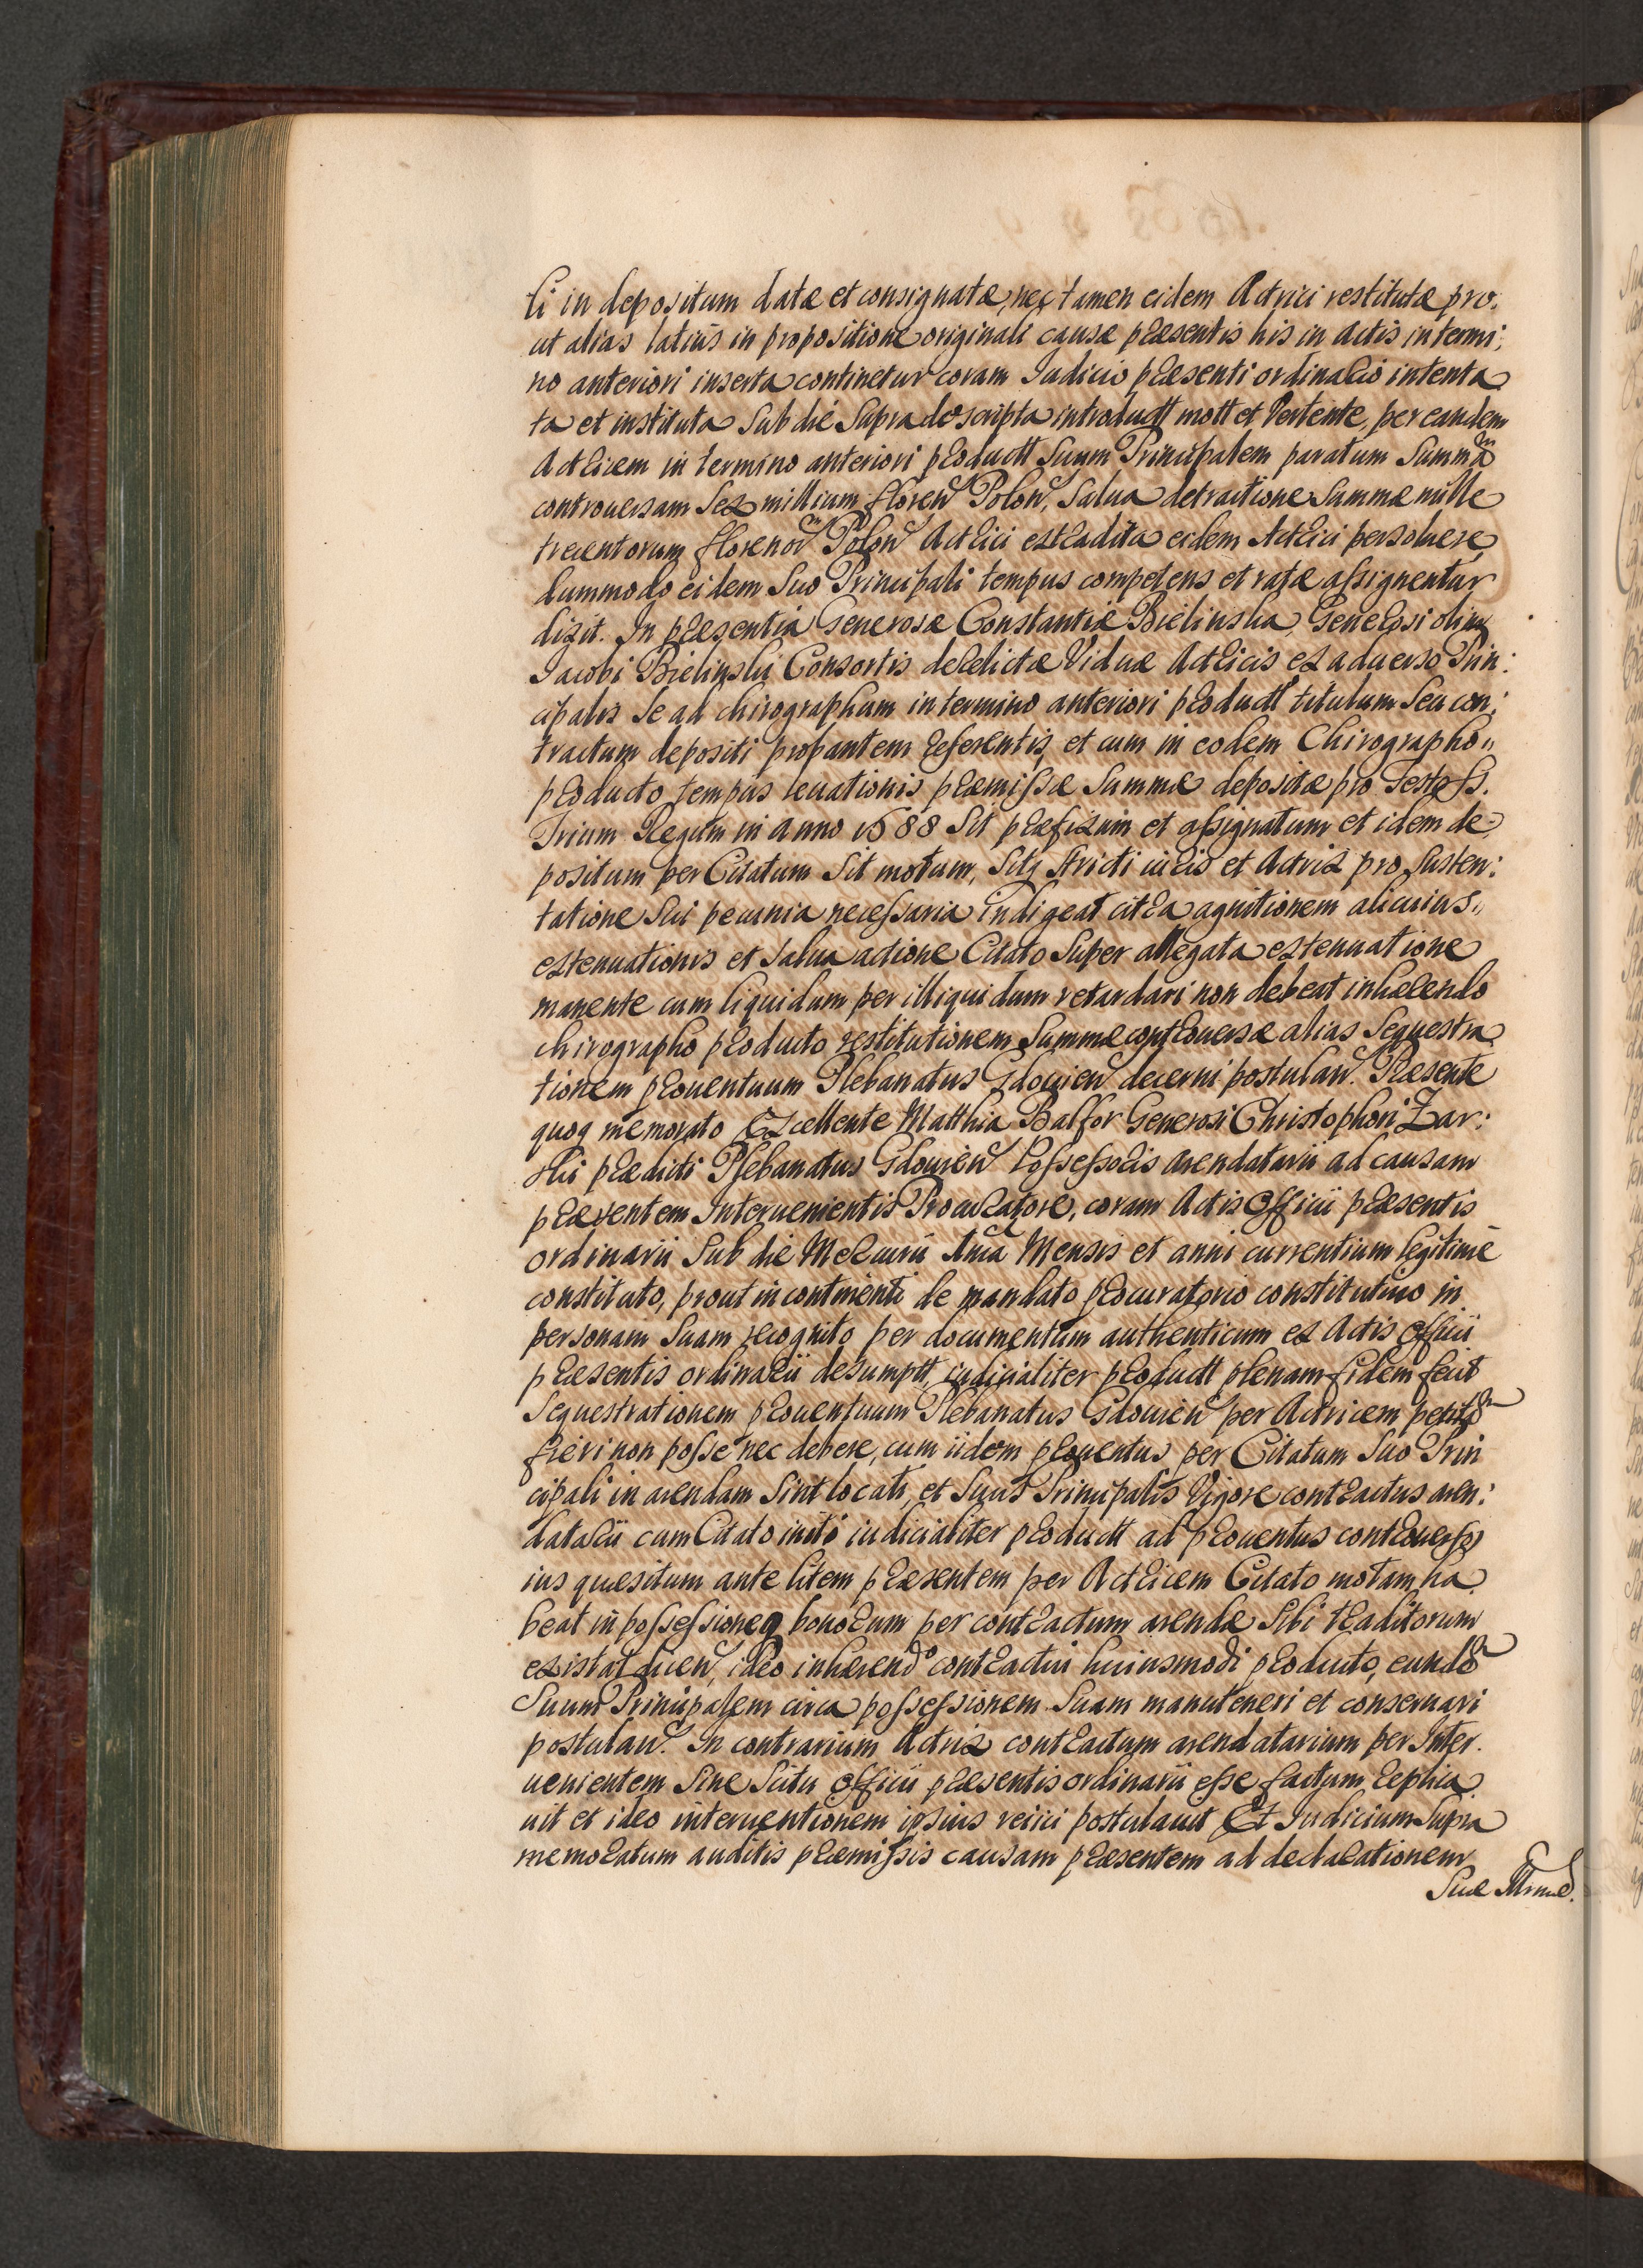 li in depositum datæ et consignatæ, nec tamen eidem Actrici restitutæ pro:
ut alias latius in propositione originali causæ præsentis his in Actis in termi:
no anteriori inserta continetur coram Iudicio præsenti ordinario intenta
ta et instituta Sub die Supradescripta introductt mott et Vertente, per eandem
Actricem in termino anteriori productt Suum Principalem paratum Summã
controuersam Sex millium floren Polon, Salua detractione Summæ mille
trecentorum florenor Polon Actrici extradita eidem Actrici persoluere,
dummodo eidem Suo Principali tempus competens et ratæ assignentur
dixit. In præsentia Generosæ Constantiæ Bielinska, Generosi olim
Iacobi Bielinski Consortis derelictæ Viduæ Actricis ex aduerso Prin:
cipalis Se ad chirographum in termino anteriori productt titulum Seu con:
tractum depositi probantem referentis, et cum in eodem Chirographo„
producto tempus leuationis præmissæ Summæ depositæ pro Festo SS.
Trium Regum in Anno 1688 Sit præfixum et assignatum et idem de
positum per Citatum Sit motum, Sitq stricti iuris et Actrix pro Susten:
tatione Sui pecunia necessaria indigeat citra agnitionem alicuius„
extenuationis et Salua actione Citato Super allegata extenuatione
manente cum liquidum per illiquidum retardari non debeat inhærendo
chirographo producto restitutionem Summæ controuersæ alias Sequestra
tionem prouentuum Plebanatus Gdouien decerni postulau. Præsente
quoq memorato Excellente Matthia Balfor Generosi Christophori Zar:
ski prædicti Plebanatus Gdouien Possessoris Arendatarii ad causam
præsentem Interuenientis Procuratore, coram Actis Officii præsentis
ordinarii Sub die Mercurii Mensis et anni currentium legitime
constituto, prout in continenti de mandato procuratorio constitutiuo in
personam Suam recognito per documentum authenticum ex Actis Officii
præsentis ordinarii desumptt, iudicialiter productt plenam fidem fecit
Sequestrationem prouentuum Plebanatus Gdouien per Actricem petitã
fieri non posse nec debere, cum iidem prouentus per Citatum Suo Prin
cipali in arendam Sint locati, et Suus Principalis Vigore contractus aren:
datarii cum Citato initi iudicialiter productt ad prouentus controuersos
ius quæsitum ante litem præsentem per Actricem Citato motam ha
beat in possessioneq bonorum per contractum arendæ Sibi traditorum
existat ideo inhærendo contractui huiusmodi producto, eundẽ
Suum Principalem circa possessionem Suam manuteneri et conseruari
postulau. In contrarium Actrix contractum arendatarium per Inter
uenientem Sine Scitu Officii præsentis ordinarii esse factum replica
uit et ideo interuentionem ipsius reiici postulauit Et Iudicium Supra
memoratum auditis præmissis causam præsentem ad declarationem